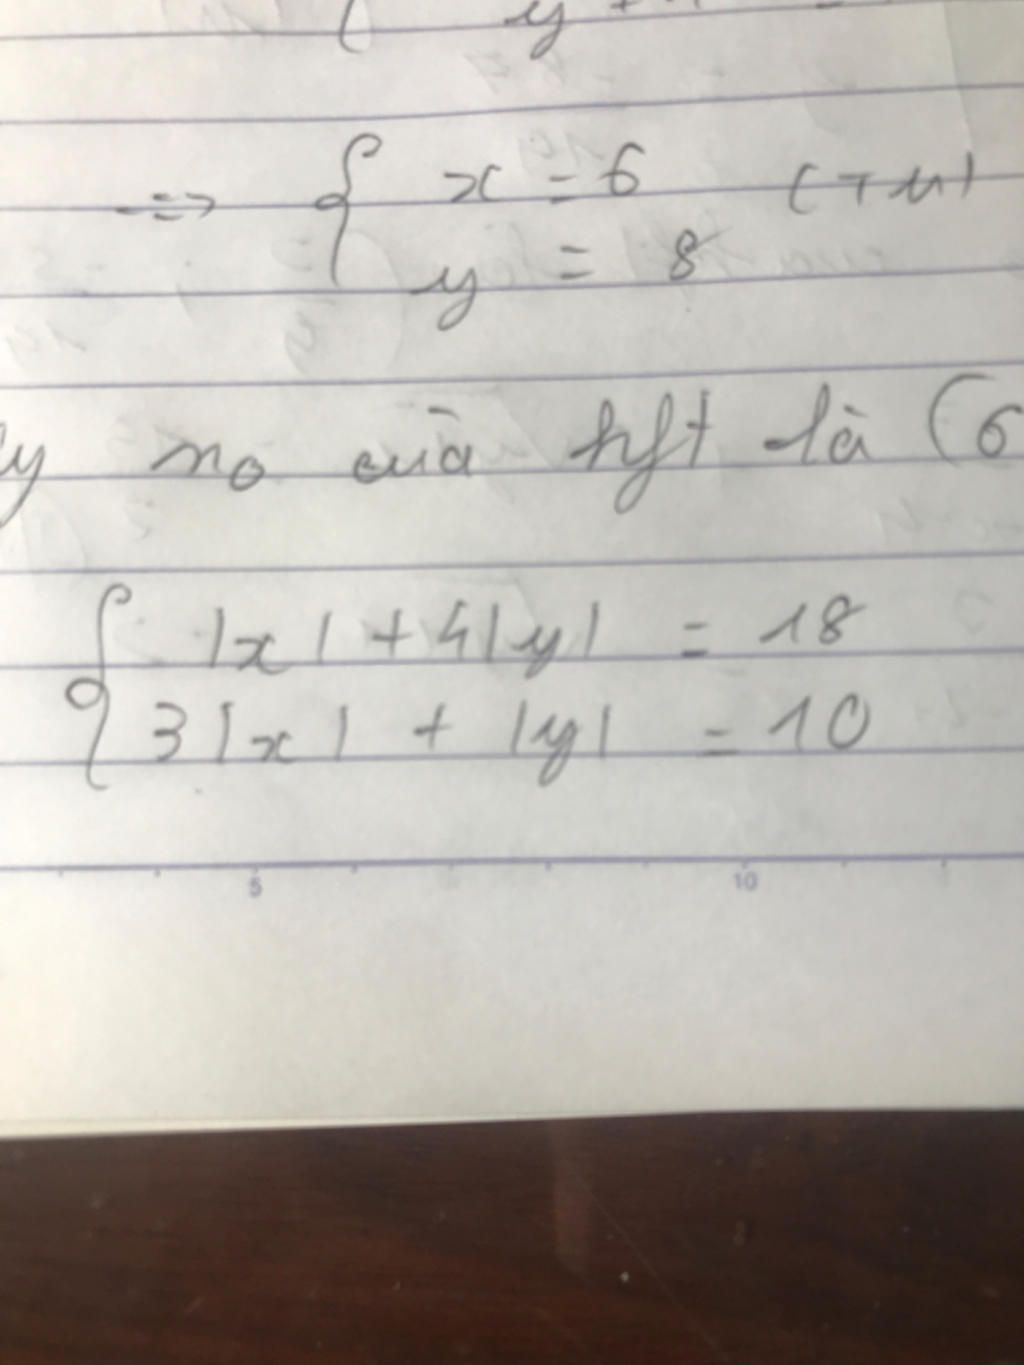 => { x = 6 (TM)
y = 8
no của hpt là (6
{ |x| + 4|y| = 18
3|x| + |y| = 10
5 10